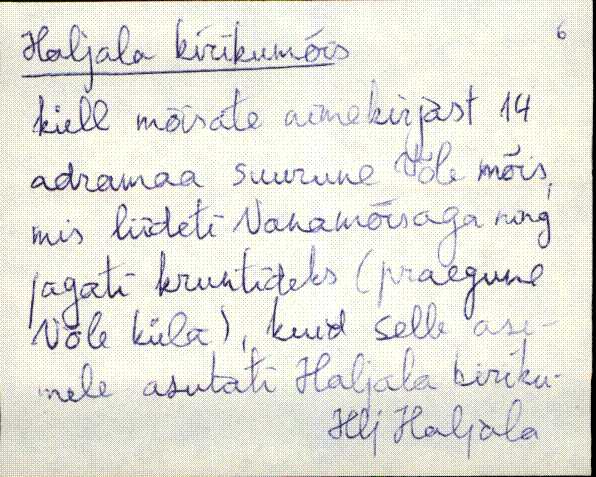 Haljala kirikumõis
6
kiell mõisate nimekirjast 14
adramaa suurune Võle mõis,
mis liideti Vanamõisaga ning
jagati kruntideks (praegune
Võle küla), kuid selle ase-
mele asutati Haljala kiriku-
Hlj Haljala